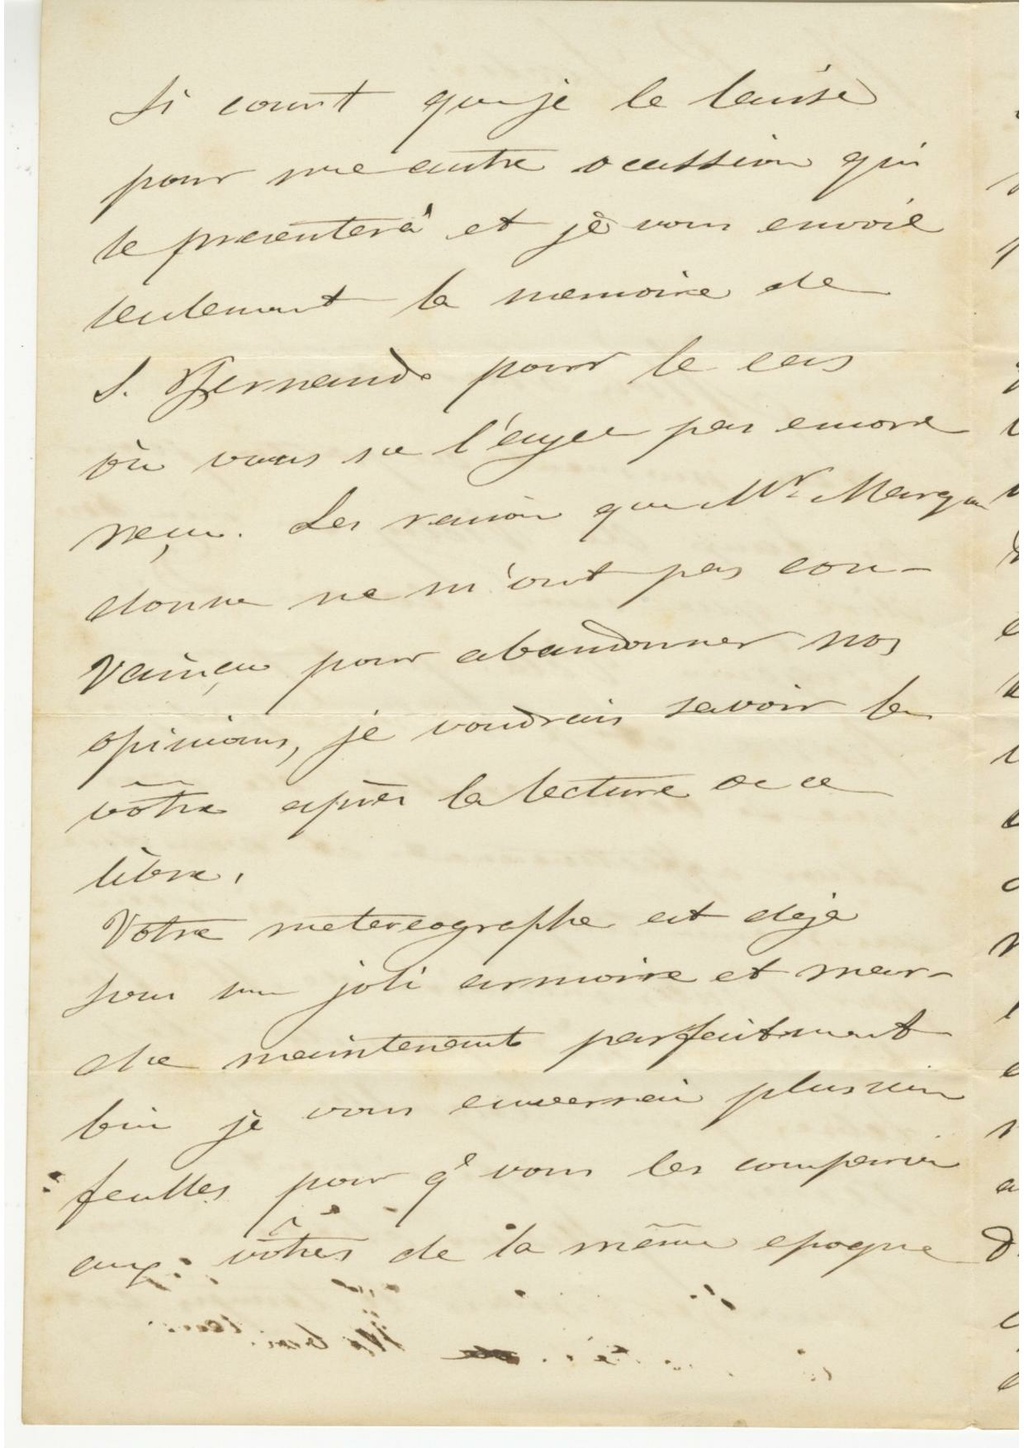 si court que je le laisse
pour une autre ocassion qui
se presenterá et je vous envoie
seulement la memoire de
S. Fernando pour le cas
où vous ne l'ayez pas encore
reçu. Les raison que Mr. Marqu
donne ne m'ont pas con-
vainçu pour abandonner nos
opinions, je voudrais savoir la
vôtre après la lecture de ce
libre.
Votre metereographe est deja
sous un joli armoire et mar-
che maintenant parfaitement
bien je vous enverrai plusieurs
feulles pour qe vous les compariez
aux vôtres de la même epoque